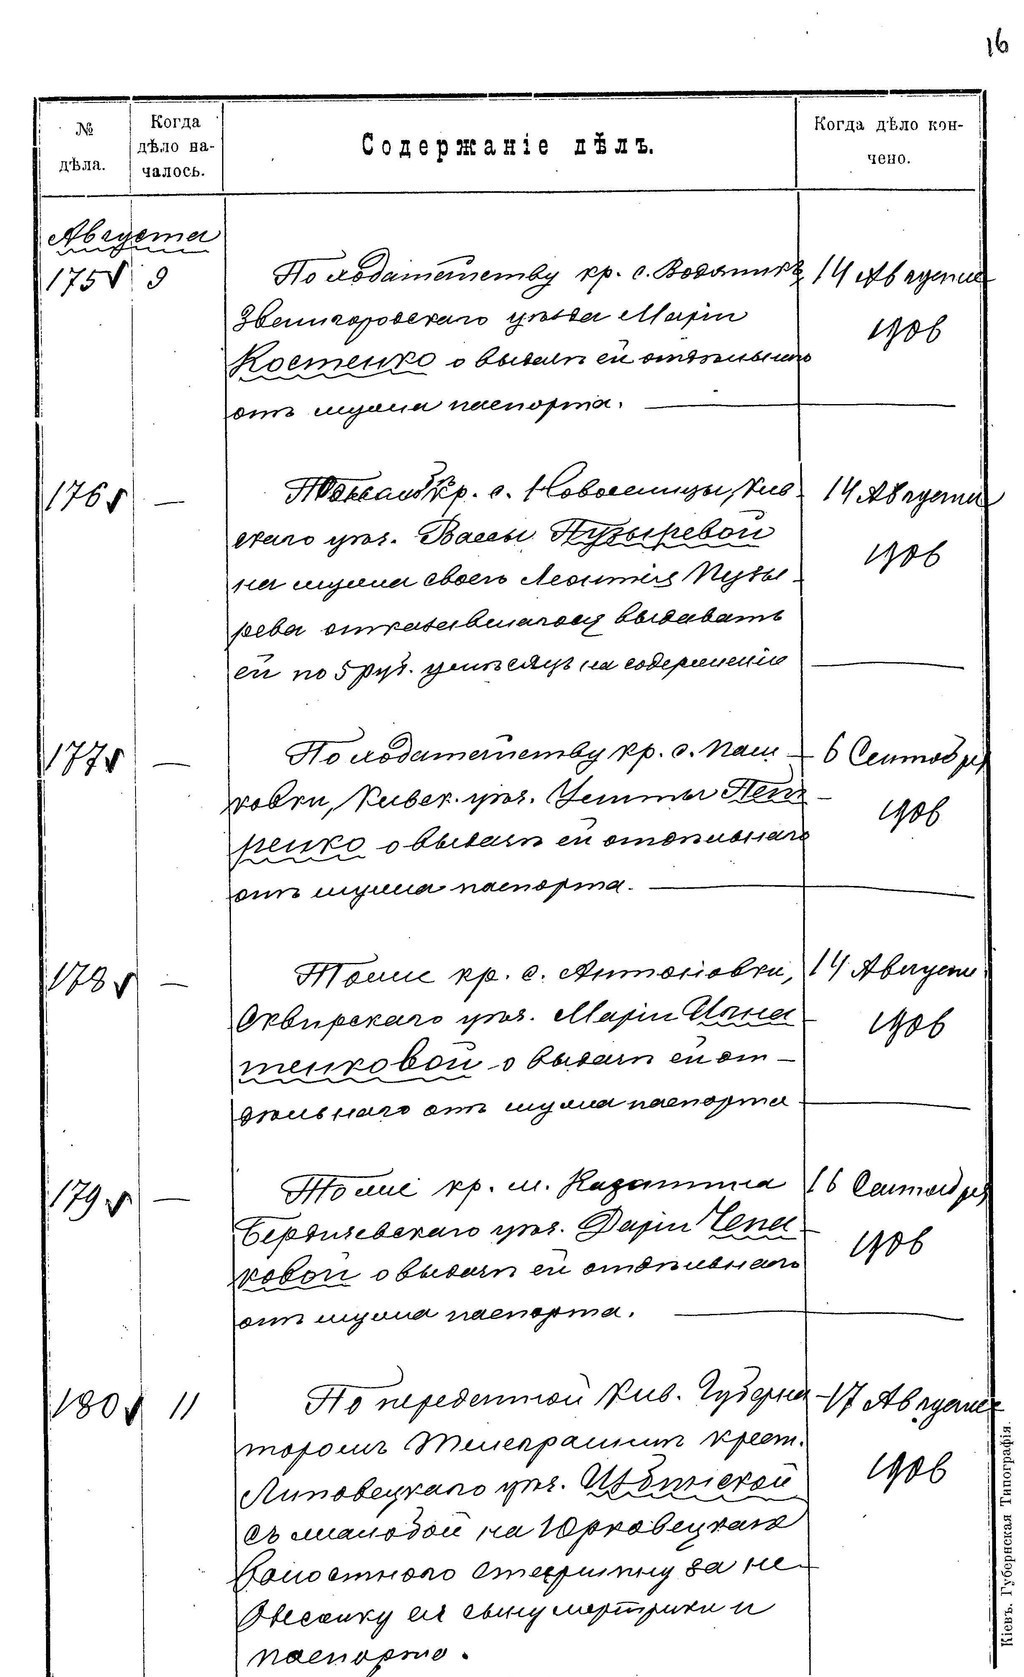 16
№ дѣла.
Когда дѣло началось.
Содержаніе дѣлъ.
Когда дѣло кончено.
Августа
175 9 По ходатайству кр. с. Водяникъ, 14 Августа
Звенигородскаго уѣзда Маріи 1906
Костенко о выдачѣ ей отдѣльнаго
отъ мужа паспорта.
176 — кр. с. Новоселицы, Кіев- 14 Августа
скаго уѣз. Вассы Пузыревой 1906
на мужа своего Леонтія Пузы-
рева отказывшагося выдавать
ей по 5 руб. въ мѣсяцъ на содержаніе
177 — По ходатайству кр. с. Паш- 6 Сентября
ковки, Кіевск. уѣз. Улиты Пет- 1906
ренко о выдачѣ ей отдѣльнаго
отъ мужа паспорта.
178 — Тоже кр. с. Антоновки, 14 Августа
Сквирскаго уѣз. Маріи Игна- 1906
тенковой о выдачѣ ей от-
дѣльнаго отъ мужа паспорта
179 — Тоже кр. м. Казатина 16 Сентября
Бердичевскаго уѣз. Даріи Чепа- 1906
ковой о выдачѣ ей отдѣльнаго
отъ мужа паспорта.
180 11 По переданной Кіев. Губерна- 17 Августа
торомъ телеграммѣ крест. 1906
Липовецкаго уѣз.
съ жалобой на Юрковецкаго
волостного старшину за не-
высылку ея сыну метрики и
паспорта.
Кіевъ. Губернская Типографія.